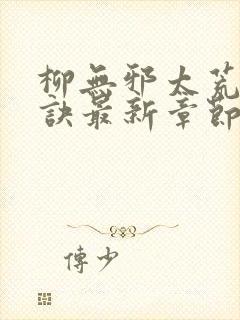 柳無邪太荒
訣最新章節
傅少